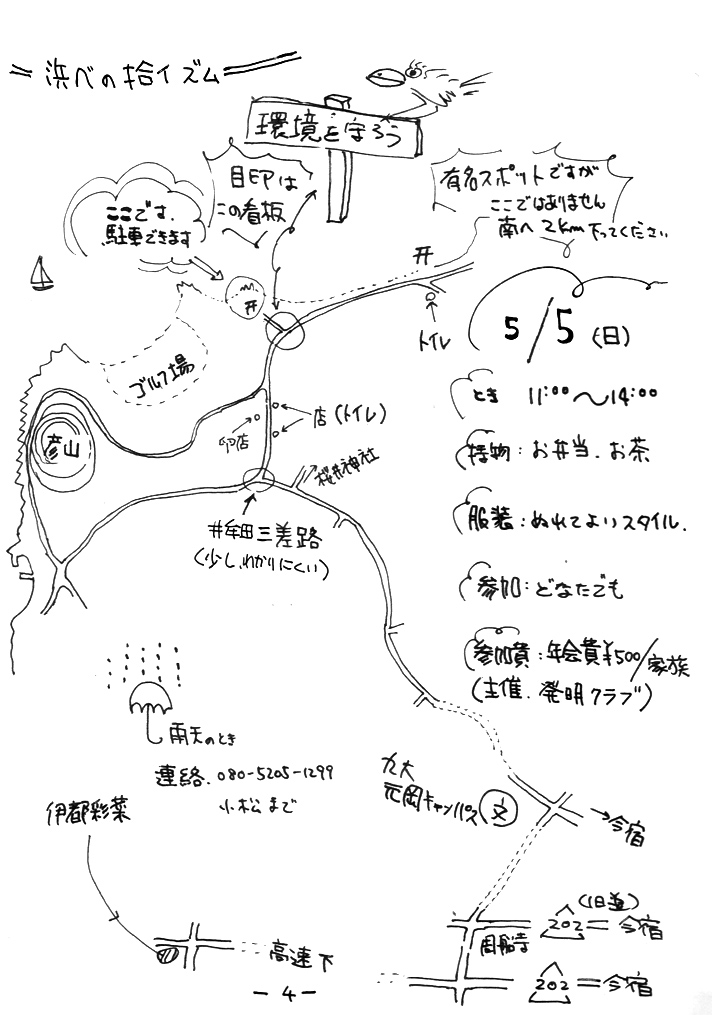 浜べの拾イズム
環境を守ろう
目印は
この看板
ここです、
駐車できます
有名スポットですが
ここではありません
南へ2km下ってください
トイレ
5/5(日)
とき 11:00〜14:00
持物:お弁当、お茶
服装:ぬれてよいスタイル.
参加:どなたでも
参加費:年会費¥500/家族
(主催、発明クラブ)
ゴルフ場
彦山
店(トイレ)
卵店
桜井神社
井牟田三差路
(少し、わかりにくい)
雨天のとき
連絡. 080-5205-1299
小松まで
九大
元岡キャンパス
文
→今宿
伊都彩菜
高速下
周船寺
(旧道)
202
今宿
202
今宿
- 4 -